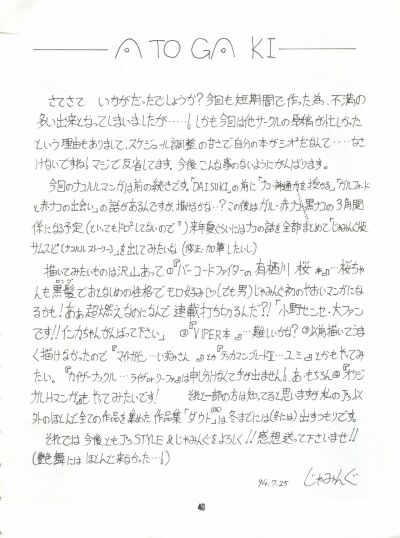 ATOGAKI
さてさて いかがだったでしょうか？今回も短期間で作った為、不満の
多い出来となってしまいましたが……！しかも今回は他サークルの原稿が忙しかった
という理由もありまして、スケジュール調整の甘さで自分の本がシオシオだなんて……なさ
けないですね！マジで反省してます。今後こんな事のないようにがんばります。
今回のナコルルマンガは前の続きです。「DAISUKI」の前に「ナコ神通力を授かる」「ガルフォード
と赤ナコの出会い」の話があるんですが、描けるかな…？この後はガル・赤ナコ・黒ナコの3角関
係になる予定(といってもドロドロしてないので)来年夏ぐらいにはナコの話を全部まとめて「じゃみんぐ版
サムスピ(ナコルルストーリー)」を出してみたいな(修正・加筆したいし)
描いてみたいものは沢山あって①『バーコードファイターの有栖川 桜本』…桜ちゃ
んも黒髪でおとなめの性格でモロ好み(しっても男)じゃみんぐ初のやおいマンガにな
るかも！あぁ超燃えなのになんで連載打ちきりなんだ？！「小野センセ、大ファン
です！！インカちゃんがんばって下さい」 ②『VIPER本』…難しいかな？③以前描いてうま
く描けなかったので『マイナギン…いずみさん』とか『テッカマンブレードII…ユミ』とかもやってみ
たい。『カイザーナックル…ライザorリーファ』は申し分けなくて手が出ません！あ、もちろん④『オリジ
ナルHマンガ』もやってみたいです！ それと一部の方は知ってると思いますが私のJ's以
外のほとんど全ての作品を集めた作品集「ダウト」は冬までには(冬には)出すつもりです。
それでは 今後ともJ's STYLE & じゃみんぐをよろしく！！感想送って下さいませ！！
(艶舞にはほとんど来なかった…！)
94.7.25 じゃみんぐ
40